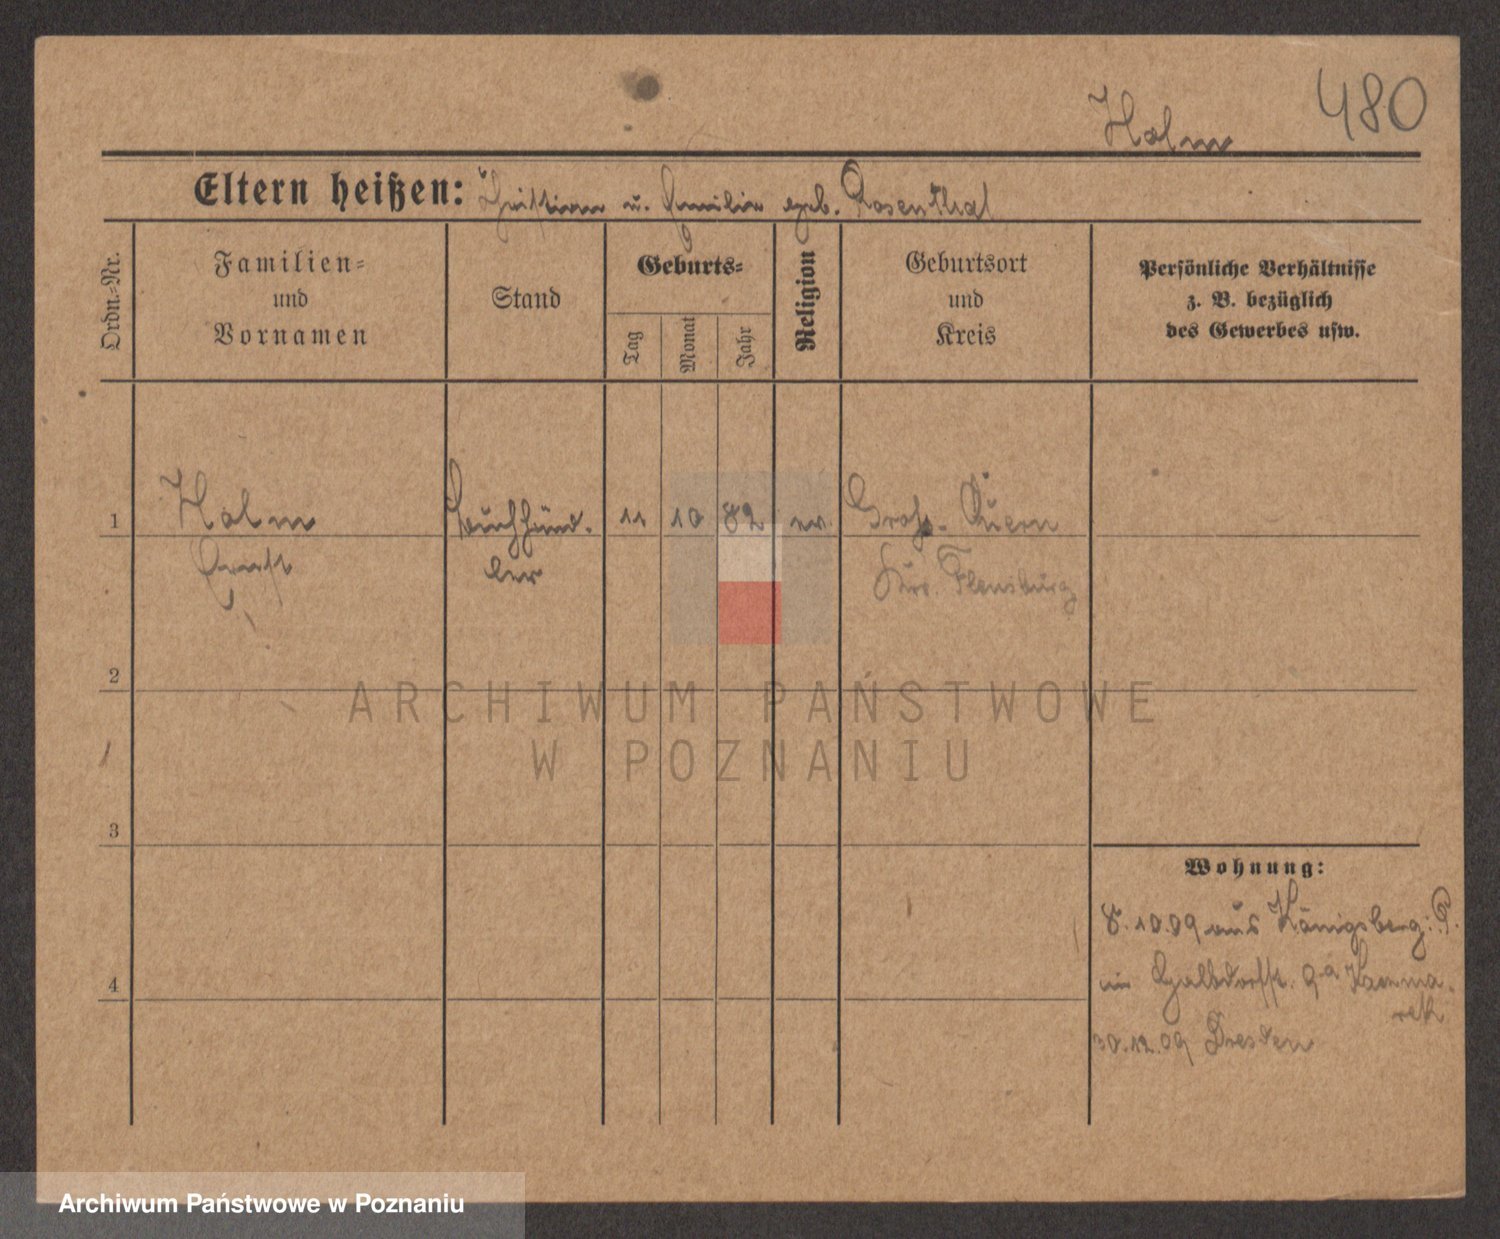 480
Holm
Eltern heißen: Christian u. Emilie geb. Rosenthal
Ordn.-Nr.
Familien-
und
Vornamen
Stand
Geburts-
Tag
Monat
Jahr
Religion
Geburtsort
und
Kreis
Persönliche Verhältnisse
z. B. bezüglich
des Gewerbes usw.
1
Holm
Ernst
Buchhänd-
ler
11
10
82
ev.
Groß-Quern
Krs. Flensburg
2
ARCHIWUM PAŃSTWOWE
W POZNANIU
3
4
Wohnung:
8.10.09 aus Königsberg i. P.
in 9a Kaczma-
rek
30.12.09 Dresden
Archiwum Państwowe w Poznaniu